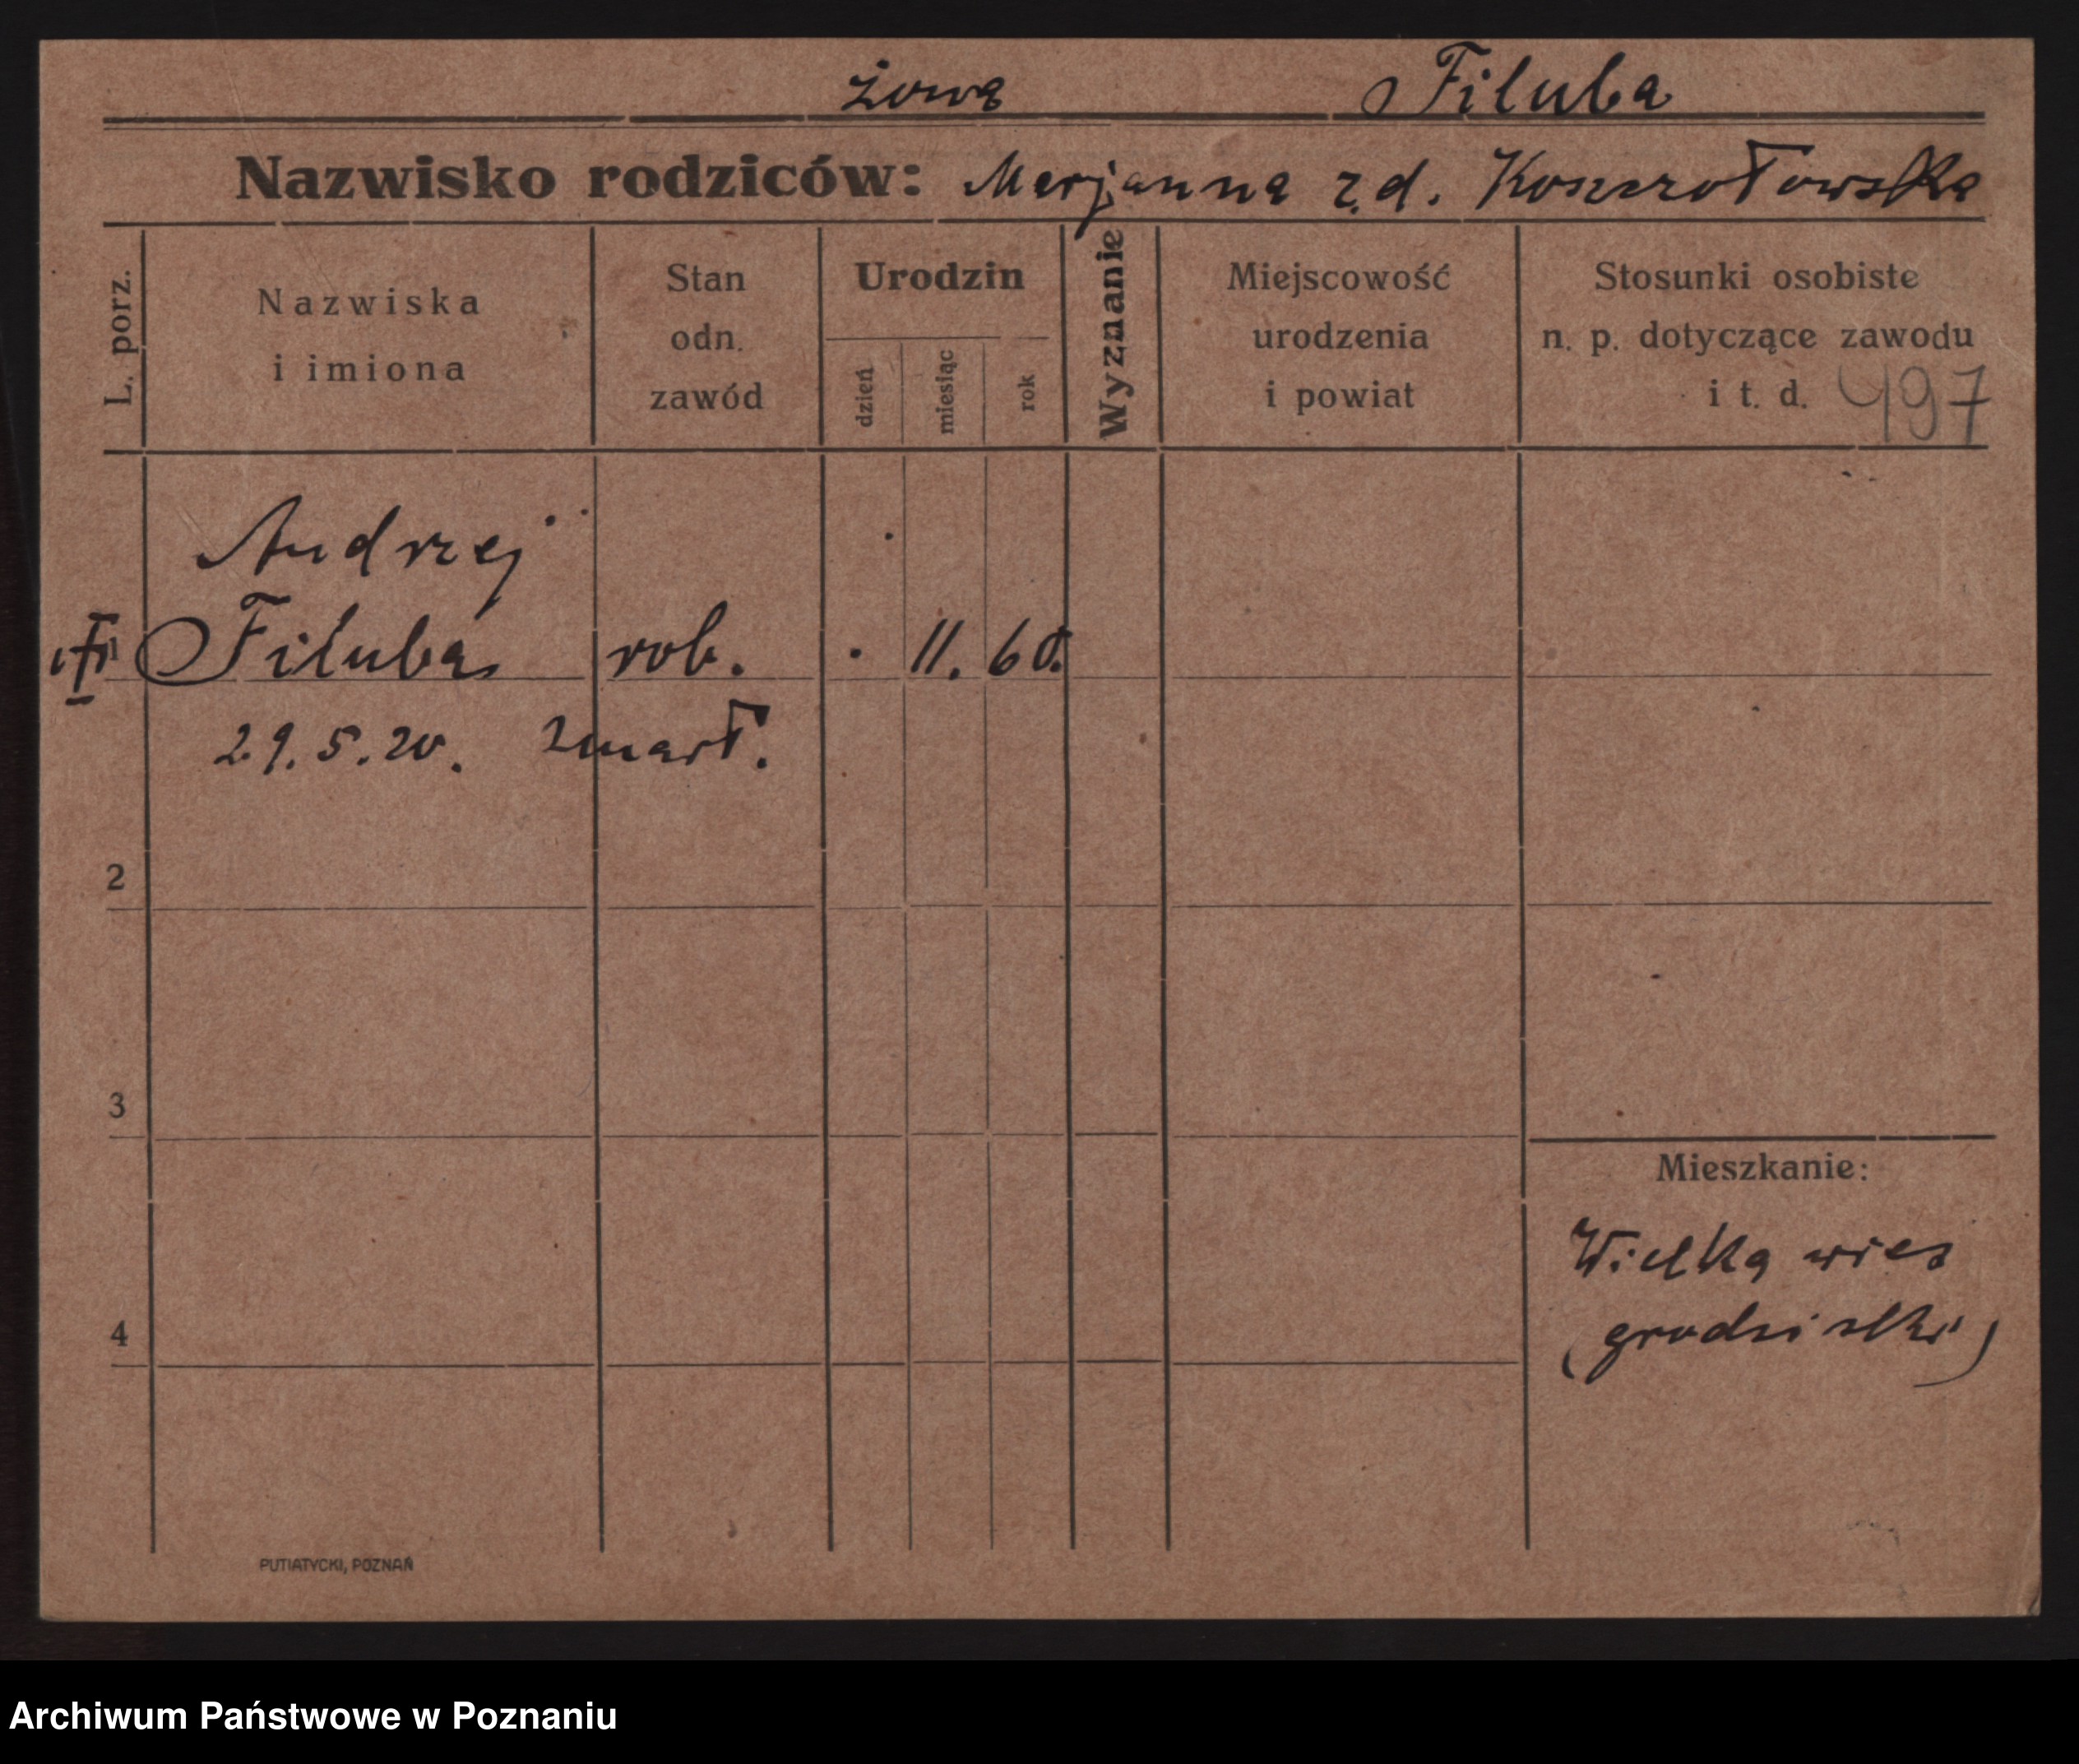 żona Filuba
Nazwisko rodziców: Marjanna z.d.
L. porz.
Nazwiska
i imiona
Stan
odn.
zawód
Urodzin
dzień
miesiąc
rok
Wyznanie
Miejscowość
urodzenia
i powiat
Stosunki osobiste
n. p. dotyczące zawodu
i t. d. 497
Andrzej
Filuba rob. . 11. 60.
29.5.20. zmarł.
2
3
Mieszkanie:
Wielka wieś
4
PUTIATYCKI, POZNAŃ
Archiwum Państwowe w Poznaniu